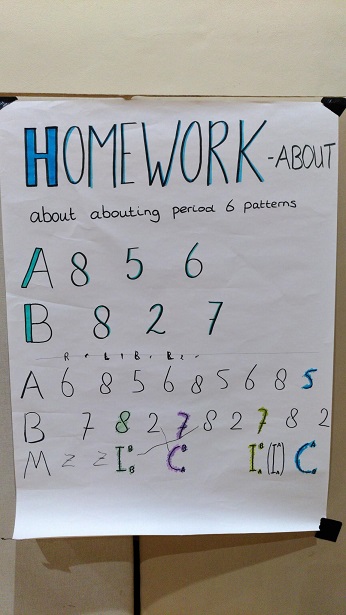 HOMEWORK -ABOUT
about abouting period 6 patterns
A 8 5 6
B 8 2 7
A 6 8 5 6 8 5 6 8 5
B 7 8 2 7 8 2 7 8 2
M z z I B B C B A I B A (I A B) C A B